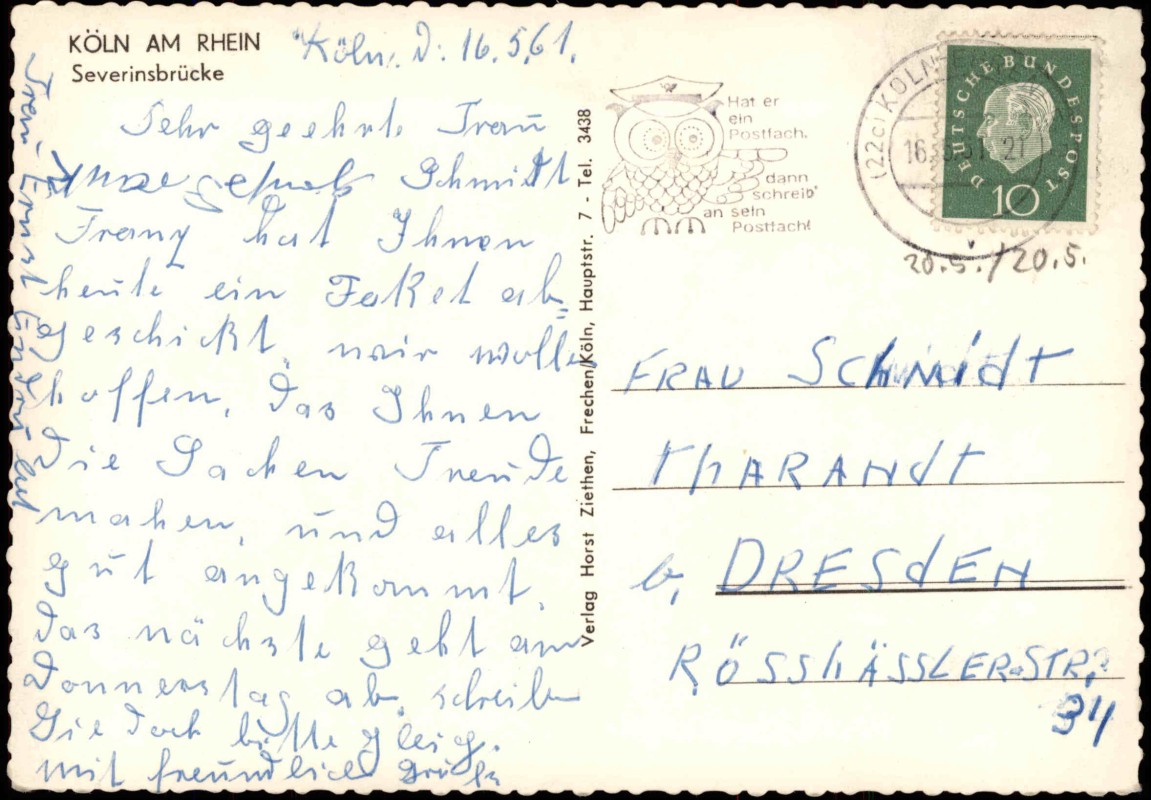 KÖLN AM RHEIN
Severinsbrücke
Köln. D: 16.5.61.
Sehr geehrte Frau
Schmidt
Franz hat Ihnen
heute ein Paket ab-
geschickt, wir wollen
hoffen, das Ihnen
die Sachen Freude
mahen, und alles
gut angekommt.
das nächste geht am
Donnerstag ab. schreiben
Sie doch bitte gleich.
mit freundlich Grüße
Verlag Horst Ziethen, Frechen/Köln, Hauptstr. 7 - Tel. 3438
Hat er
ein
Postfach,
dann
schreib'
an sein
Postfach!
(22c) KÖLN
16.5.61.-21
DEUTSCHE BUNDESPOST
10
20.5./20.5.
FRAU SCHMIdT
THARANdT
b, DRESdEN
RÖSSHÄSSLER-STR.
34